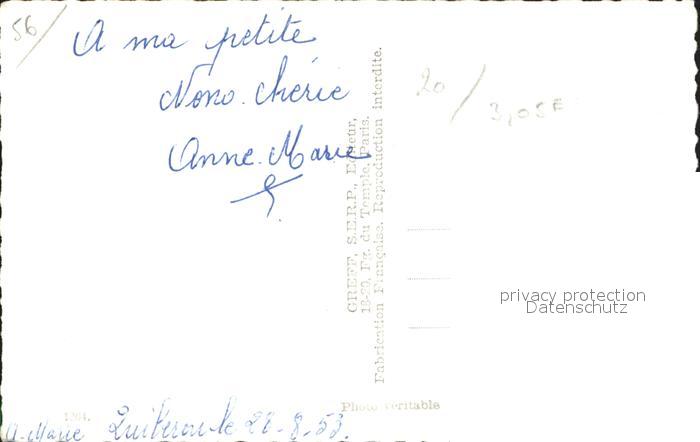 56/
A ma petite
Nono chérie
Anne-Marie
20 /
3,05E
GREFF, S.E.R.P., Editeur,
18-20, Fg. du Temple, Paris.
Fabrication Française. Reproduction interdite.
privacy protection
Datenschutz
Photo véritable
1204.
A-Marie Quiberon le 28-8-53.